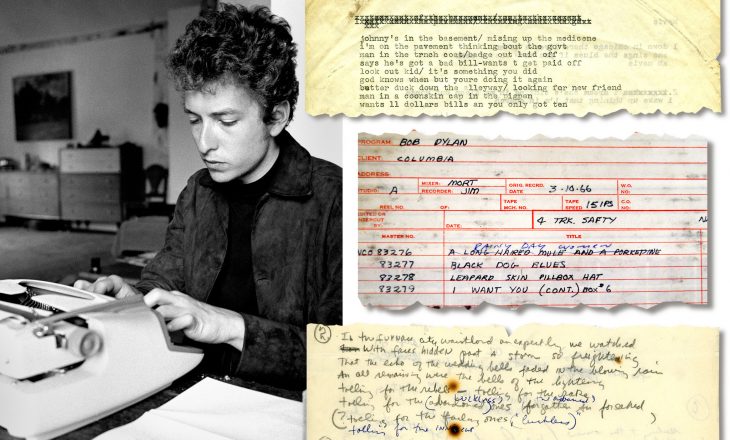 johnny's in the basement/ mising up the medicene
i'm on the pavement thinking bout the govt
man in the trnch coat/badge out laid off
says he's got a bad bill-wants t get paid off
look out kid/ it's something you did
god knows when but youre doing it again
better duck down the alleyway/ looking for a new friend
man in a coonskin cap in the pigpen
wants ll dollars bills an you only got ten
PROGRAM: BOB DYLAN
CLIENT: COLUMBIA
ADDRESS:
STUDIO: A MIXER: MORT RECORDER: JIM ORIG. RECRD. DATE 3-10-66 W.O. NO:
REEL NO. OF: TAPE MCH. NO. TAPE SPEED 15 IPS C.O. NO:
EDITED OR UNDERCUT BY: DATE: 4 TRK. SAFTY
MASTER NO. TITLE
RAINY DAY WOMEN
NCO 83276 A LONG HAIRED MULE AND A PORKEPINE
83277 BLACK DOG BLUES
83278 LEAPARD SKIN PILLBOX HAT
83279 I WANT YOU (CONT.) BOX #6
In the furnace city wasteland unexpectedly we watched
With faces hidden past a storm so frightening
That the echo of the wedding bells faded in the blowing rain
An all remaining were the bells of the lightening
tolling for the rebel tolling for the rake
tolling for the (abandoned) ones (forgotten an forsaked)
(? tolling for the
tolling for the